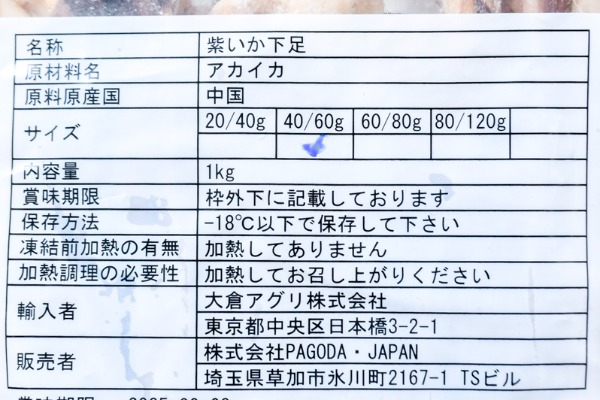 名称 紫いか下足
原材料名 アカイカ
原料原産国 中国
サイズ 20/40g 40/60g 60/80g 80/120g
内容量 1kg
賞味期限 枠外下に記載しております
保存方法 -18℃以下で保存して下さい
凍結前加熱の有無 加熱してありません
加熱調理の必要性 加熱してお召し上がりください
輸入者 大倉アグリ株式会社
東京都中央区日本橋3-2-1
販売者 株式会社PAGODA・JAPAN
埼玉県草加市氷川町2167-1 TSビル